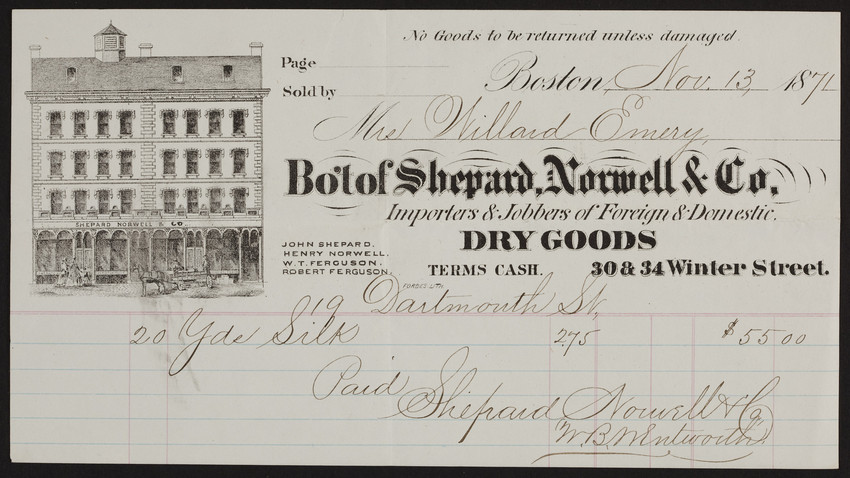 No Goods to be returned unless damaged.
Page
Boston, Nov. 13, 1871
Sold by
Mrs Willard Emery,
Bot of Shepard, Norwell & Co,
Importers & Jobbers of Foreign & Domestic.
DRY GOODS
TERMS CASH. 30 & 34 Winter Street.
SHEPARD NORWELL & CO.
JOHN SHEPARD.
HENRY NORWELL.
W. T. FERGUSON.
ROBERT FERGUSON.
FORBES LITH
19 Dartmouth St,
20 Yds Silk 2.75 $55 00
Paid
Shepard Norwell & Co
W.B. Wentworth